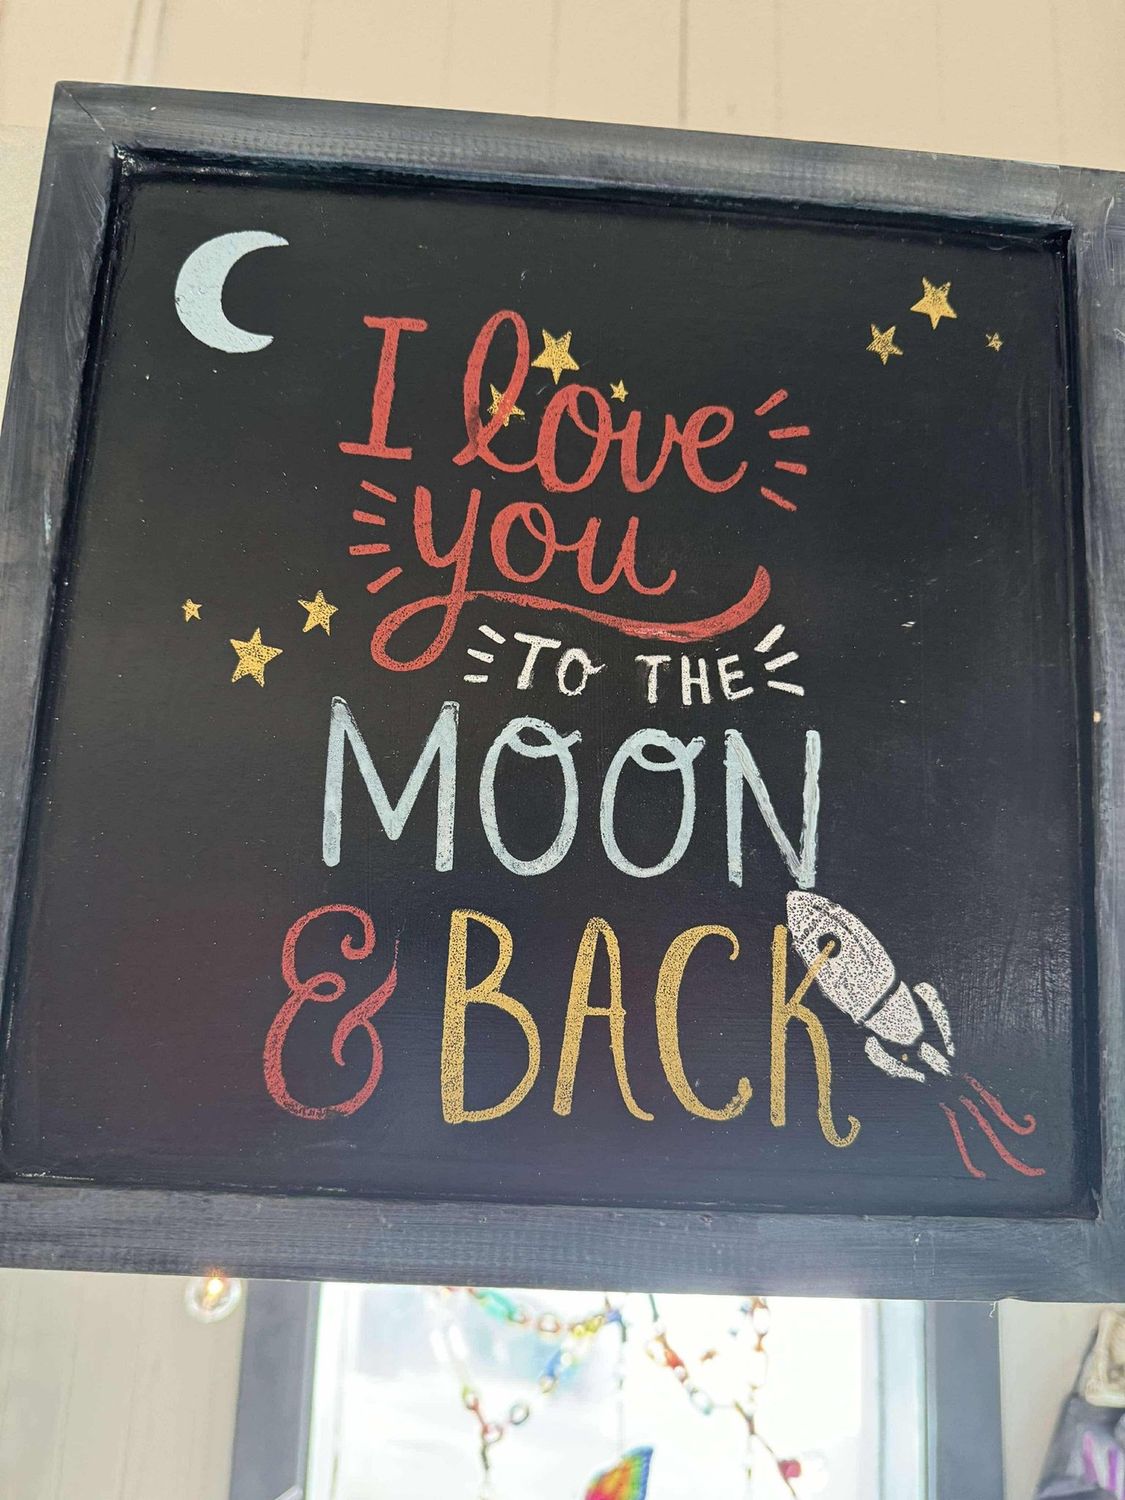 I love
you
TO THE
MOON
& BACK